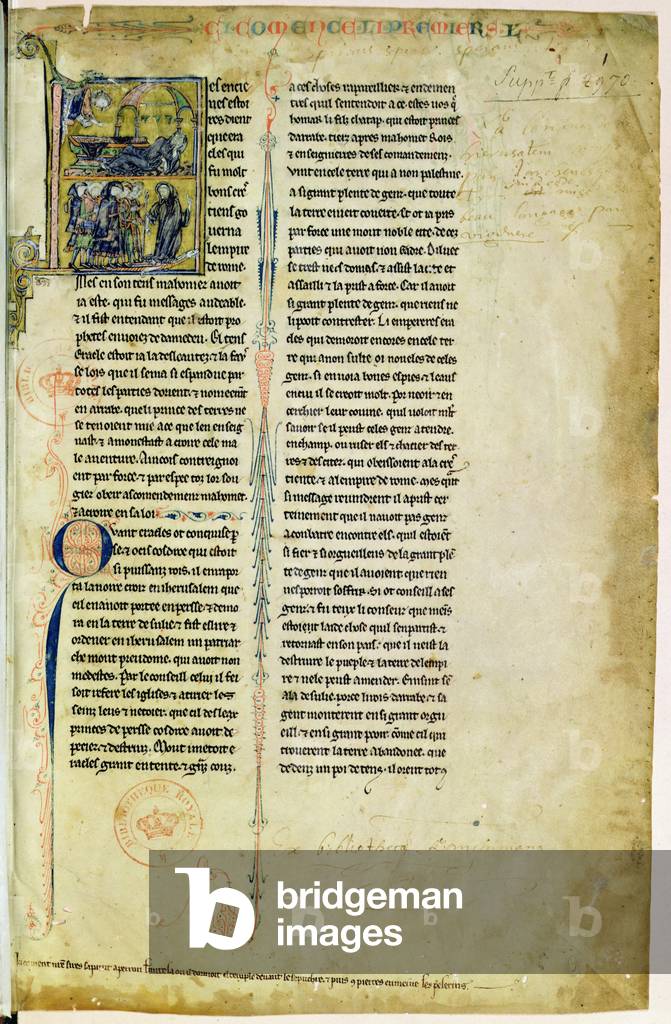 CI COMENCE LI PREMIERS L
Suppt f 4970
es encie
nes estoi
res dient
que era
cles qui
fu molt
bons cre
tiens go
uerna
lempire
de rome.
Mes en son tens mahomet auoit
ia este. qui fu messages au deable.
& il fist entendant que il estoit pro
phetes enuoiez de damedeu. El tens
Eracle estoit ia la desloautez & la fau
se lois que il sema si espandue par
totes les parties dorient & nomeemt
en arrabe. que li prince des terres ne
se tenoient mie a ce que len enseig
nast. & amonestast a croire cele ma
le auenture. Aincois contreignoi
ent par force & par espee toz lor sou
giez obeir as comendemenz mahomet.
& a croire en sa loi.
Quant eracles ot conquise p
se. & ocis cosdroe qui estoit
si puissanz rois. il en rapor
ta la uoire croiz en iherusalem que
cil en auoit portee en persse. & demo
ra en la terre de sulie. & fist eslire &
ordener en iherusalem un patriar
che mout preudome. qui auoit non
modestes. Par le conseill celui il fei
soit refere les iglises & atirier les
seinz leus & netoier. que cil desleax
princes de persse cosdroe auoit de
peciez & destruiz. Mout i metoit e
racles grant entente & granz couz.
a ces choses apareillier. & endemen
tres quil sentendoit a ce. estes uos q
homar li filz chatap. qui estoit princes
darrabe. tierz apres mahomet Rois
& enseignierres de ses comandemenz.
uint en cele terre qui a non palestine.
a si grant plente de gent. que toute
la terre en iert couerte. si ot ia pris
par force une mout noble cite. de cez
parties qui auoit non Gadre. Diluec
se trest uers domas. & assist la cite et
assailli & la prist a force. Car il auoit
si grant plente de gent. que riens ne
li pooit contrester. Li empereres era
cles qui demoroit encores en cele ter
re qui a non sulie oi noueles de celes
genz. si enuoia bones espies. & leaus
en cui il se creoit molt. Por ueoir & en
cerchier leur couine. quil uoloit mlt
sauoir se il peust celes genz atendre.
en champ. ou ruser els & chacier des ter
res & des citez. qui obeissoient a la cre
tiente. & al empire de rome. mes qnt
si message reuindrent il aprist cer
teinement que il nauoit pas genz
a combatre encontre els. qui estoit
si fier & si orgueilleus de la grant ple
te de gent que il auoient. que rien
nes porroit soffrir. Si ot conseill a ses
genz. & fu teux li conseuz que meus
estoient laide chose quil sen partist. &
retornast en son pais. que il ueist la
destruire le pueple & la terre de lempi
re. & nele peust amender. Einsint sen
ala de sulie. porce li rois darrabe. & sa
gent monterent en si grant orgu
eill. & en si grant pooir come cil qui
trouerent la terre abandonee. que
dedenz un poi de tens. il orent tot
BIBLIOTHEQUE ROYALE
Ex bibliotheca
bridgeman
images